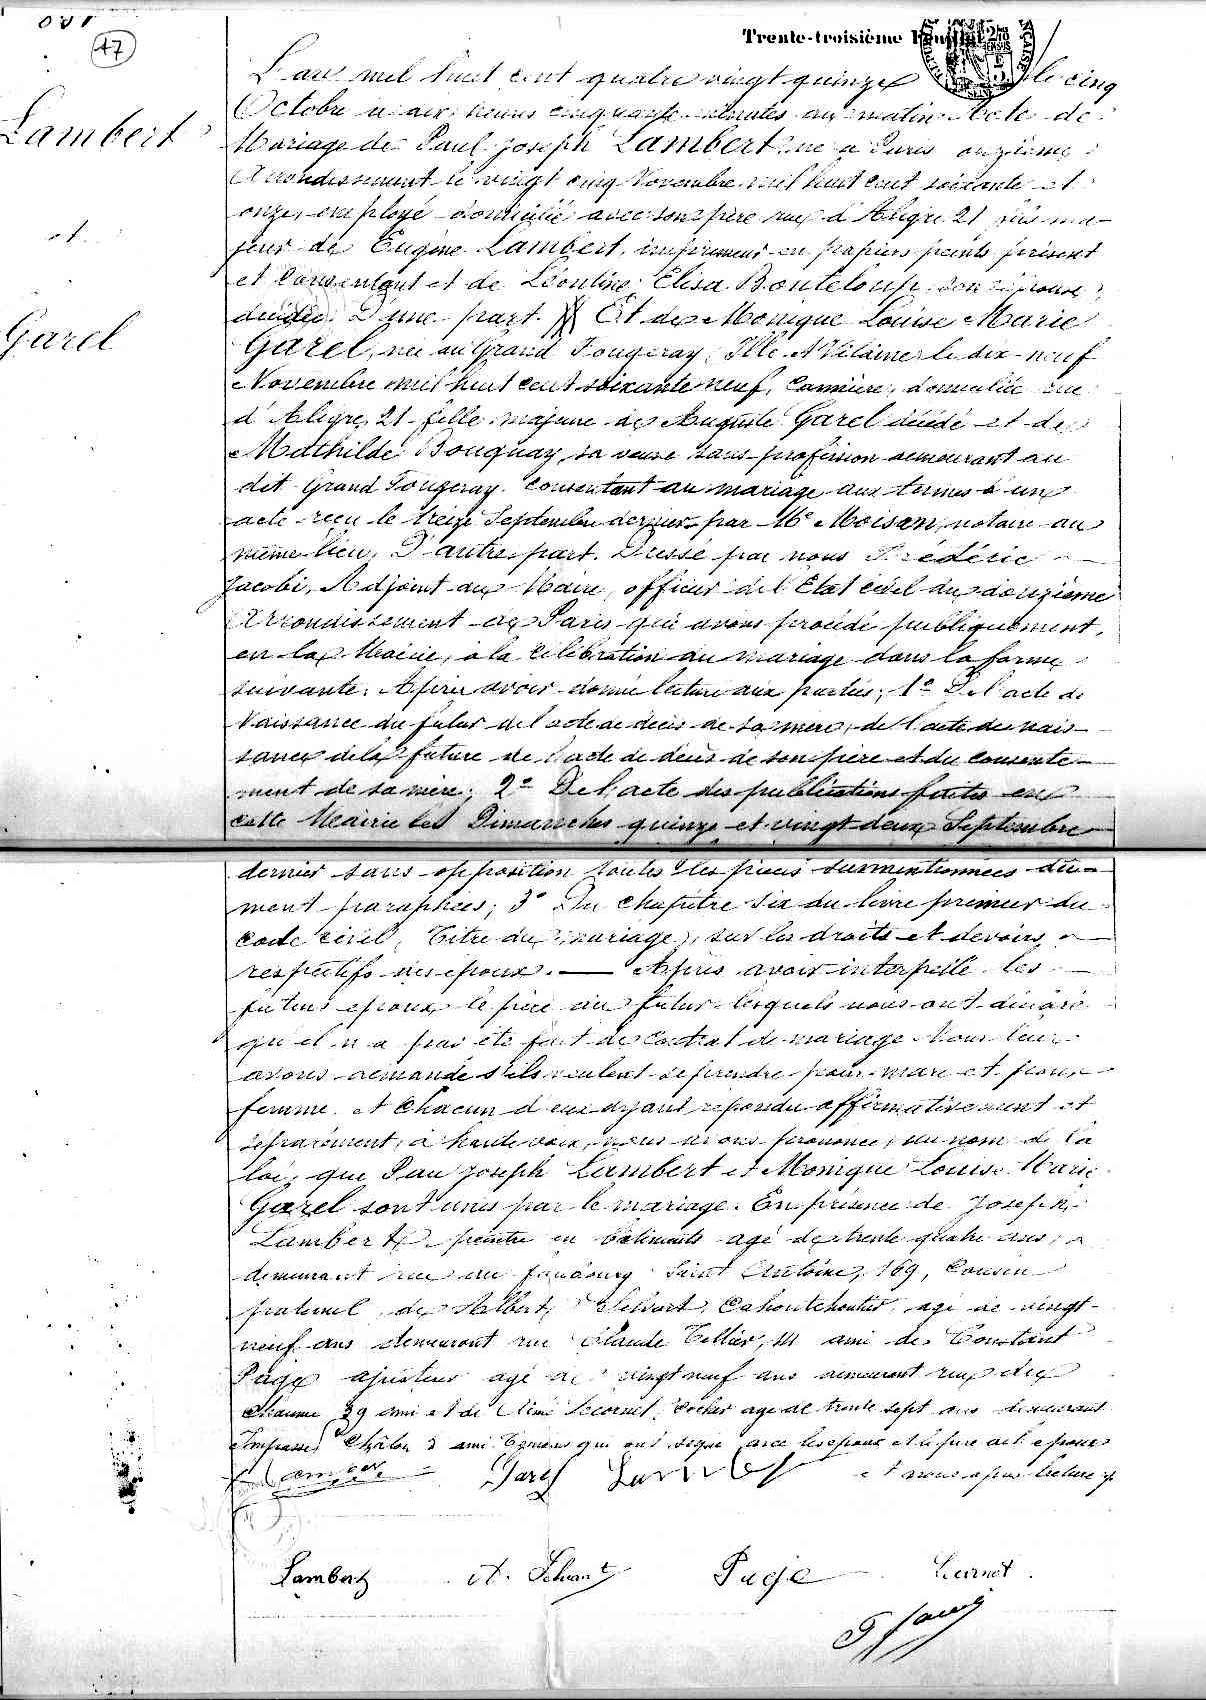 001
47
Trente-troisième Feuillet
Lambert
et
Garel
L'an mil huit cent quatre vingt quinze le cinq
Octobre à dix heures cinquante minutes du matin Acte de
Mariage de Paul Joseph Lambert né à Paris onzième
Arrondissement le vingt cinq Novembre mil huit cent soixante et
onze, employé domicilié avec son père rue d'Aligre 21 fils ma-
jeur de Eugène Lambert, imprimeur en papiers peints présent
et consentant et de Léontine Elisa Bonteloup son épouse
décédée. D'une part. Et de Monique Louise Marie
Garel, née au Grand Fougeray, Ille & Vilaine le dix-neuf
Novembre mil huit cent soixante neuf, domiciliée rue
d'Aligre, 21 fille majeure de Auguste Garel décédé et de
Mathilde Bouquay, sa veuve sans profession demeurant au
dit Grand Fougeray. Consentant au mariage aux termes d'un
acte reçu le treize Septembre dernier par Me Moisan, notaire au
même lieu, D'autre part. Dressé par nous Frédéric
Jacobi, Adjoint au Maire, officier de l'Etat civil du douzième
Arrondissement de Paris qui avons procédé publiquement,
en la Mairie, à la célébration du mariage dans la forme
suivante. Après avoir donné lecture aux parties; 1° De l'acte de
Naissance du futur de l'acte de décès de sa mère, de l'acte de nais-
sance de la future de l'acte de décès de son père et du consente-
ment de sa mère; 2° De l'acte des publications faites en
cette Mairie les Dimanches quinze et vingt deux Septembre
dernier sans opposition toutes les pièces susmentionnées dû-
ment paraphées; 3° Du chapitre six du livre premier du
Code civil, Titre du mariage, sur les droits et devoirs
respectifs des époux. — Après avoir interpellé les
futurs époux le père du futur lesquels nous ont déclaré
qu'il n'a pas été fait de contrat de mariage Nous leur
avons demandé s'ils veulent se prendre pour mari et pour
femme et chacun d'eux ayant répondu affirmativement et
séparément, à haute voix, nous avons prononcé, au nom de la
loi, que Paul Joseph Lambert et Monique Louise Marie
Garel sont unis par le mariage. En présence de Joseph
Lambert peintre en bâtiments agé de trente quatre ans,
demeurant rue du faubourg Saint Antoine, 169, Cousin
paternel, de Albert Cahoutchoutier agé de vingt-
neuf ans demeurant rue Claude Tillier, ami de Constant
Page ajusteur agé de vingt neuf ans demeurant rue de
Chaume 39 ami et de Aimé Lecornet, Cocher agé de trente sept ans demeurant
Impasse Châlon 3 ami Témoins qui ont signé avec les époux et le père de l'époux
Lambert Garel Lambert et nous après lecture
Lambert A. Page Lecornet
F Jacobi